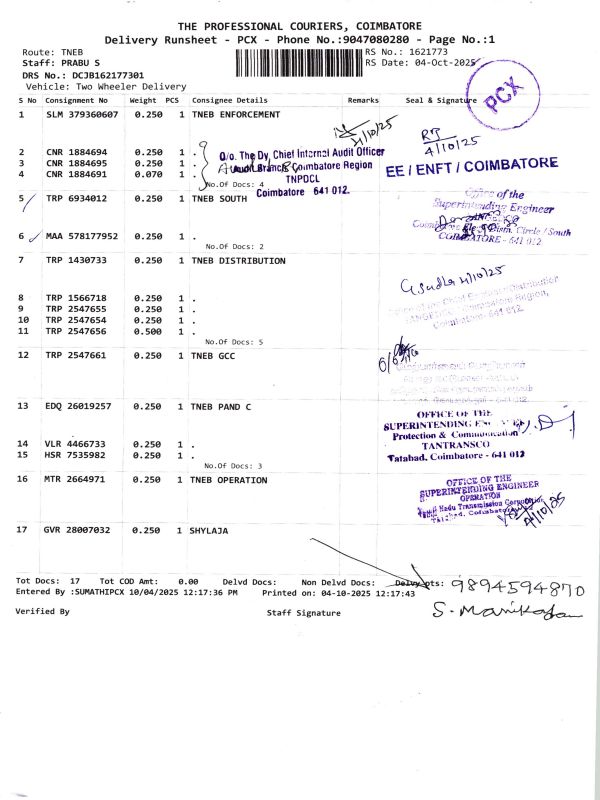 THE PROFESSIONAL COURIERS, COIMBATORE
Delivery Runsheet - PCX - Phone No.:9047080280 - Page No.:1
Route: TNEB
RS No.: 1621773
Staff: PRABU S
RS Date: 04-Oct-2025
DRS No.: DCJB162177301
Vehicle: Two Wheeler Delivery
PCX
S No Consignment No Weight PCS Consignee Details Remarks Seal & Signature
1 SLM 379360607 0.250 1 TNEB ENFORCEMENT
4/10/25
RT
4/10/25
EE / ENFT / COIMBATORE
2 CNR 1884694 0.250 1 .
3 CNR 1884695 0.250 1 .
4 CNR 1884691 0.070 1 .
No.Of Docs: 4
O/o. The Dy. Chief Internal Audit Officer
Audit Branch, Coimbatore Region
TNPDCL
Coimbatore 641 012.
5 TRP 6934012 0.250 1 TNEB SOUTH
Office of the
Superintending Engineer
Coimbatore Elec. Distn. Circle / South
COIMBATORE - 641 012
6 MAA 578177952 0.250 1 .
No.Of Docs: 2
7 TRP 1430733 0.250 1 TNEB DISTRIBUTION
4/10/25
Office of the Chief Engineer/Distribution
Coimbatore Region,
Coimbatore - 641 012.
8 TRP 1566718 0.250 1 .
9 TRP 2547655 0.250 1 .
10 TRP 2547654 0.250 1 .
11 TRP 2547656 0.500 1 .
No.Of Docs: 5
12 TRP 2547661 0.250 1 TNEB GCC
13 EDQ 26019257 0.250 1 TNEB PAND C
OFFICE OF THE
SUPERINTENDING
Protection & Communication
TANTRANSCO
Tatabad, Coimbatore - 641 012
14 VLR 4466733 0.250 1 .
15 HSR 7535982 0.250 1 .
No.Of Docs: 3
16 MTR 2664971 0.250 1 TNEB OPERATION
OFFICE OF THE
SUPERINTENDING ENGINEER
OPERATION
Tamil Nadu Transmission Corporation
Tatabad, Coimbatore
4/10/25
17 GVR 28007032 0.250 1 SHYLAJA
Tot Docs: 17 Tot COD Amt: 0.00 Delvd Docs: Non Delvd Docs: Delvy pts:
9894594870
Entered By :SUMATHIPCX 10/04/2025 12:17:36 PM Printed on: 04-10-2025 12:17:43
Verified By Staff Signature